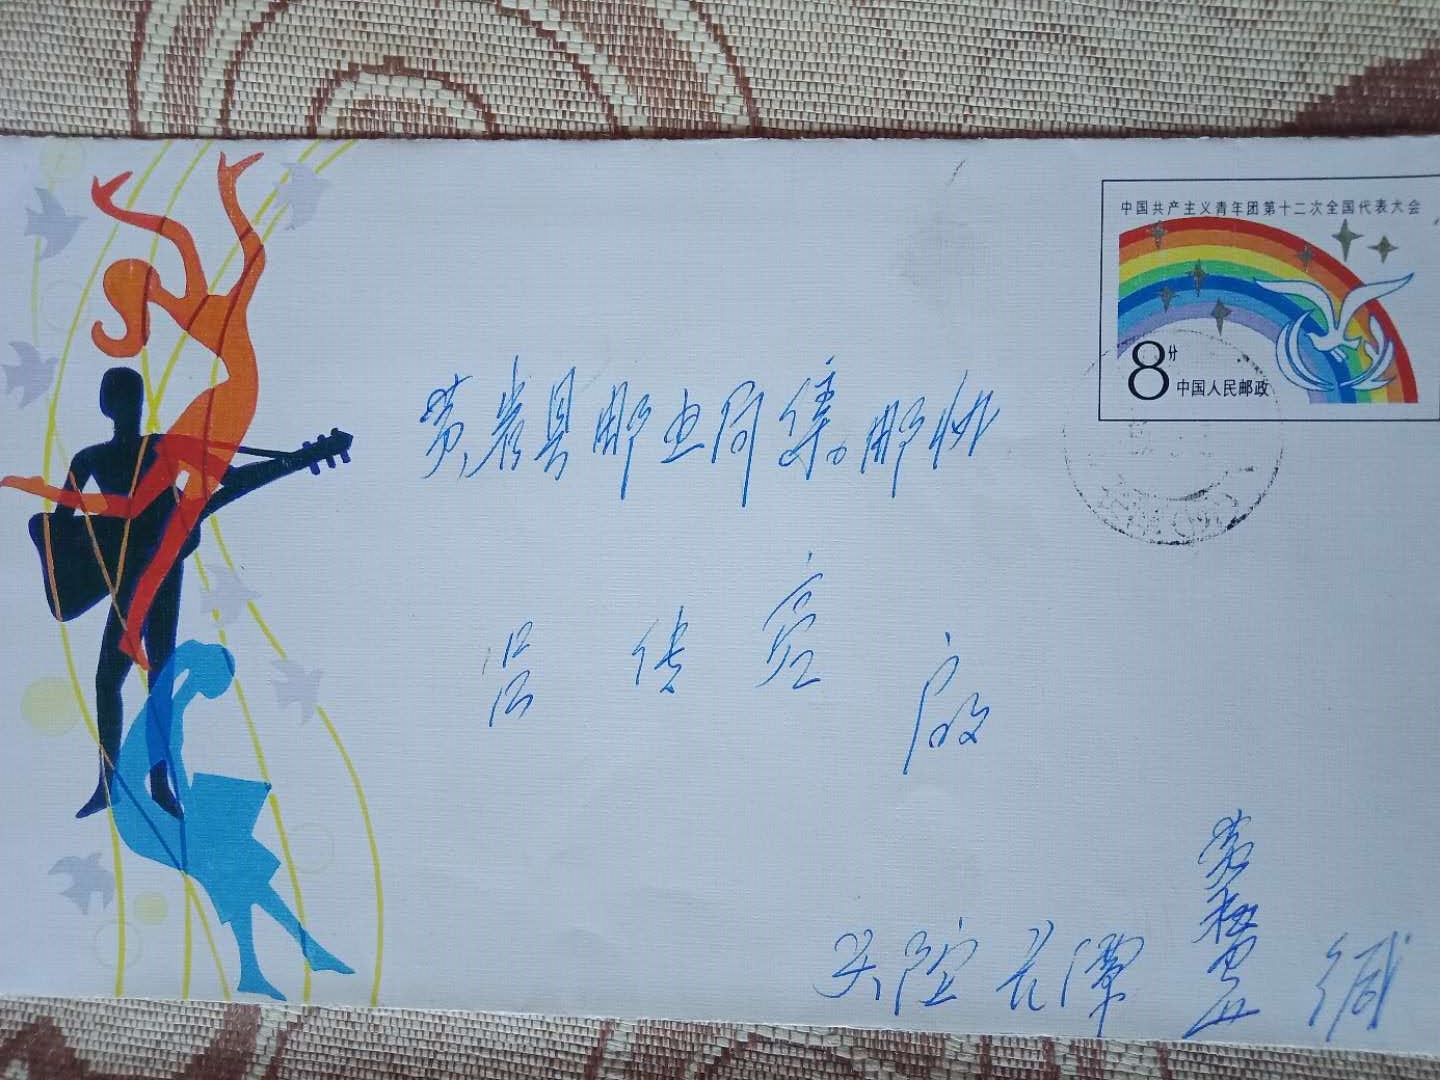 中国共产主义青年团第十二次全国代表大会
8分
中国人民邮政
黄岩县邮电局集邮协
吕传亮
启
头陀长潭
缄